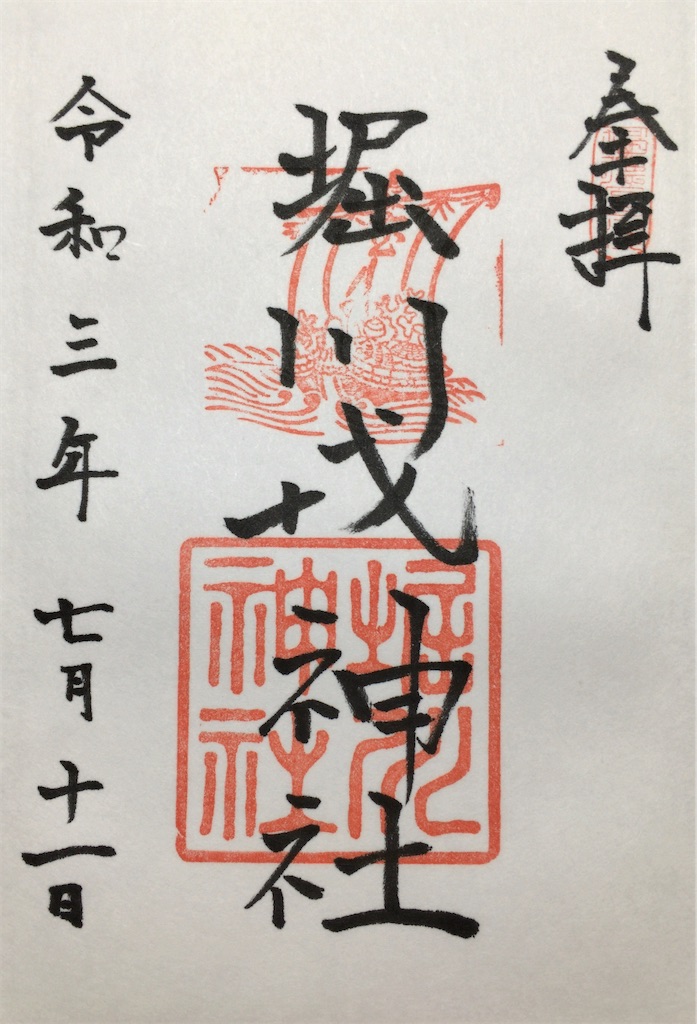 奉拝
堀川戎神社
堀川
神社
令和三年七月十一日